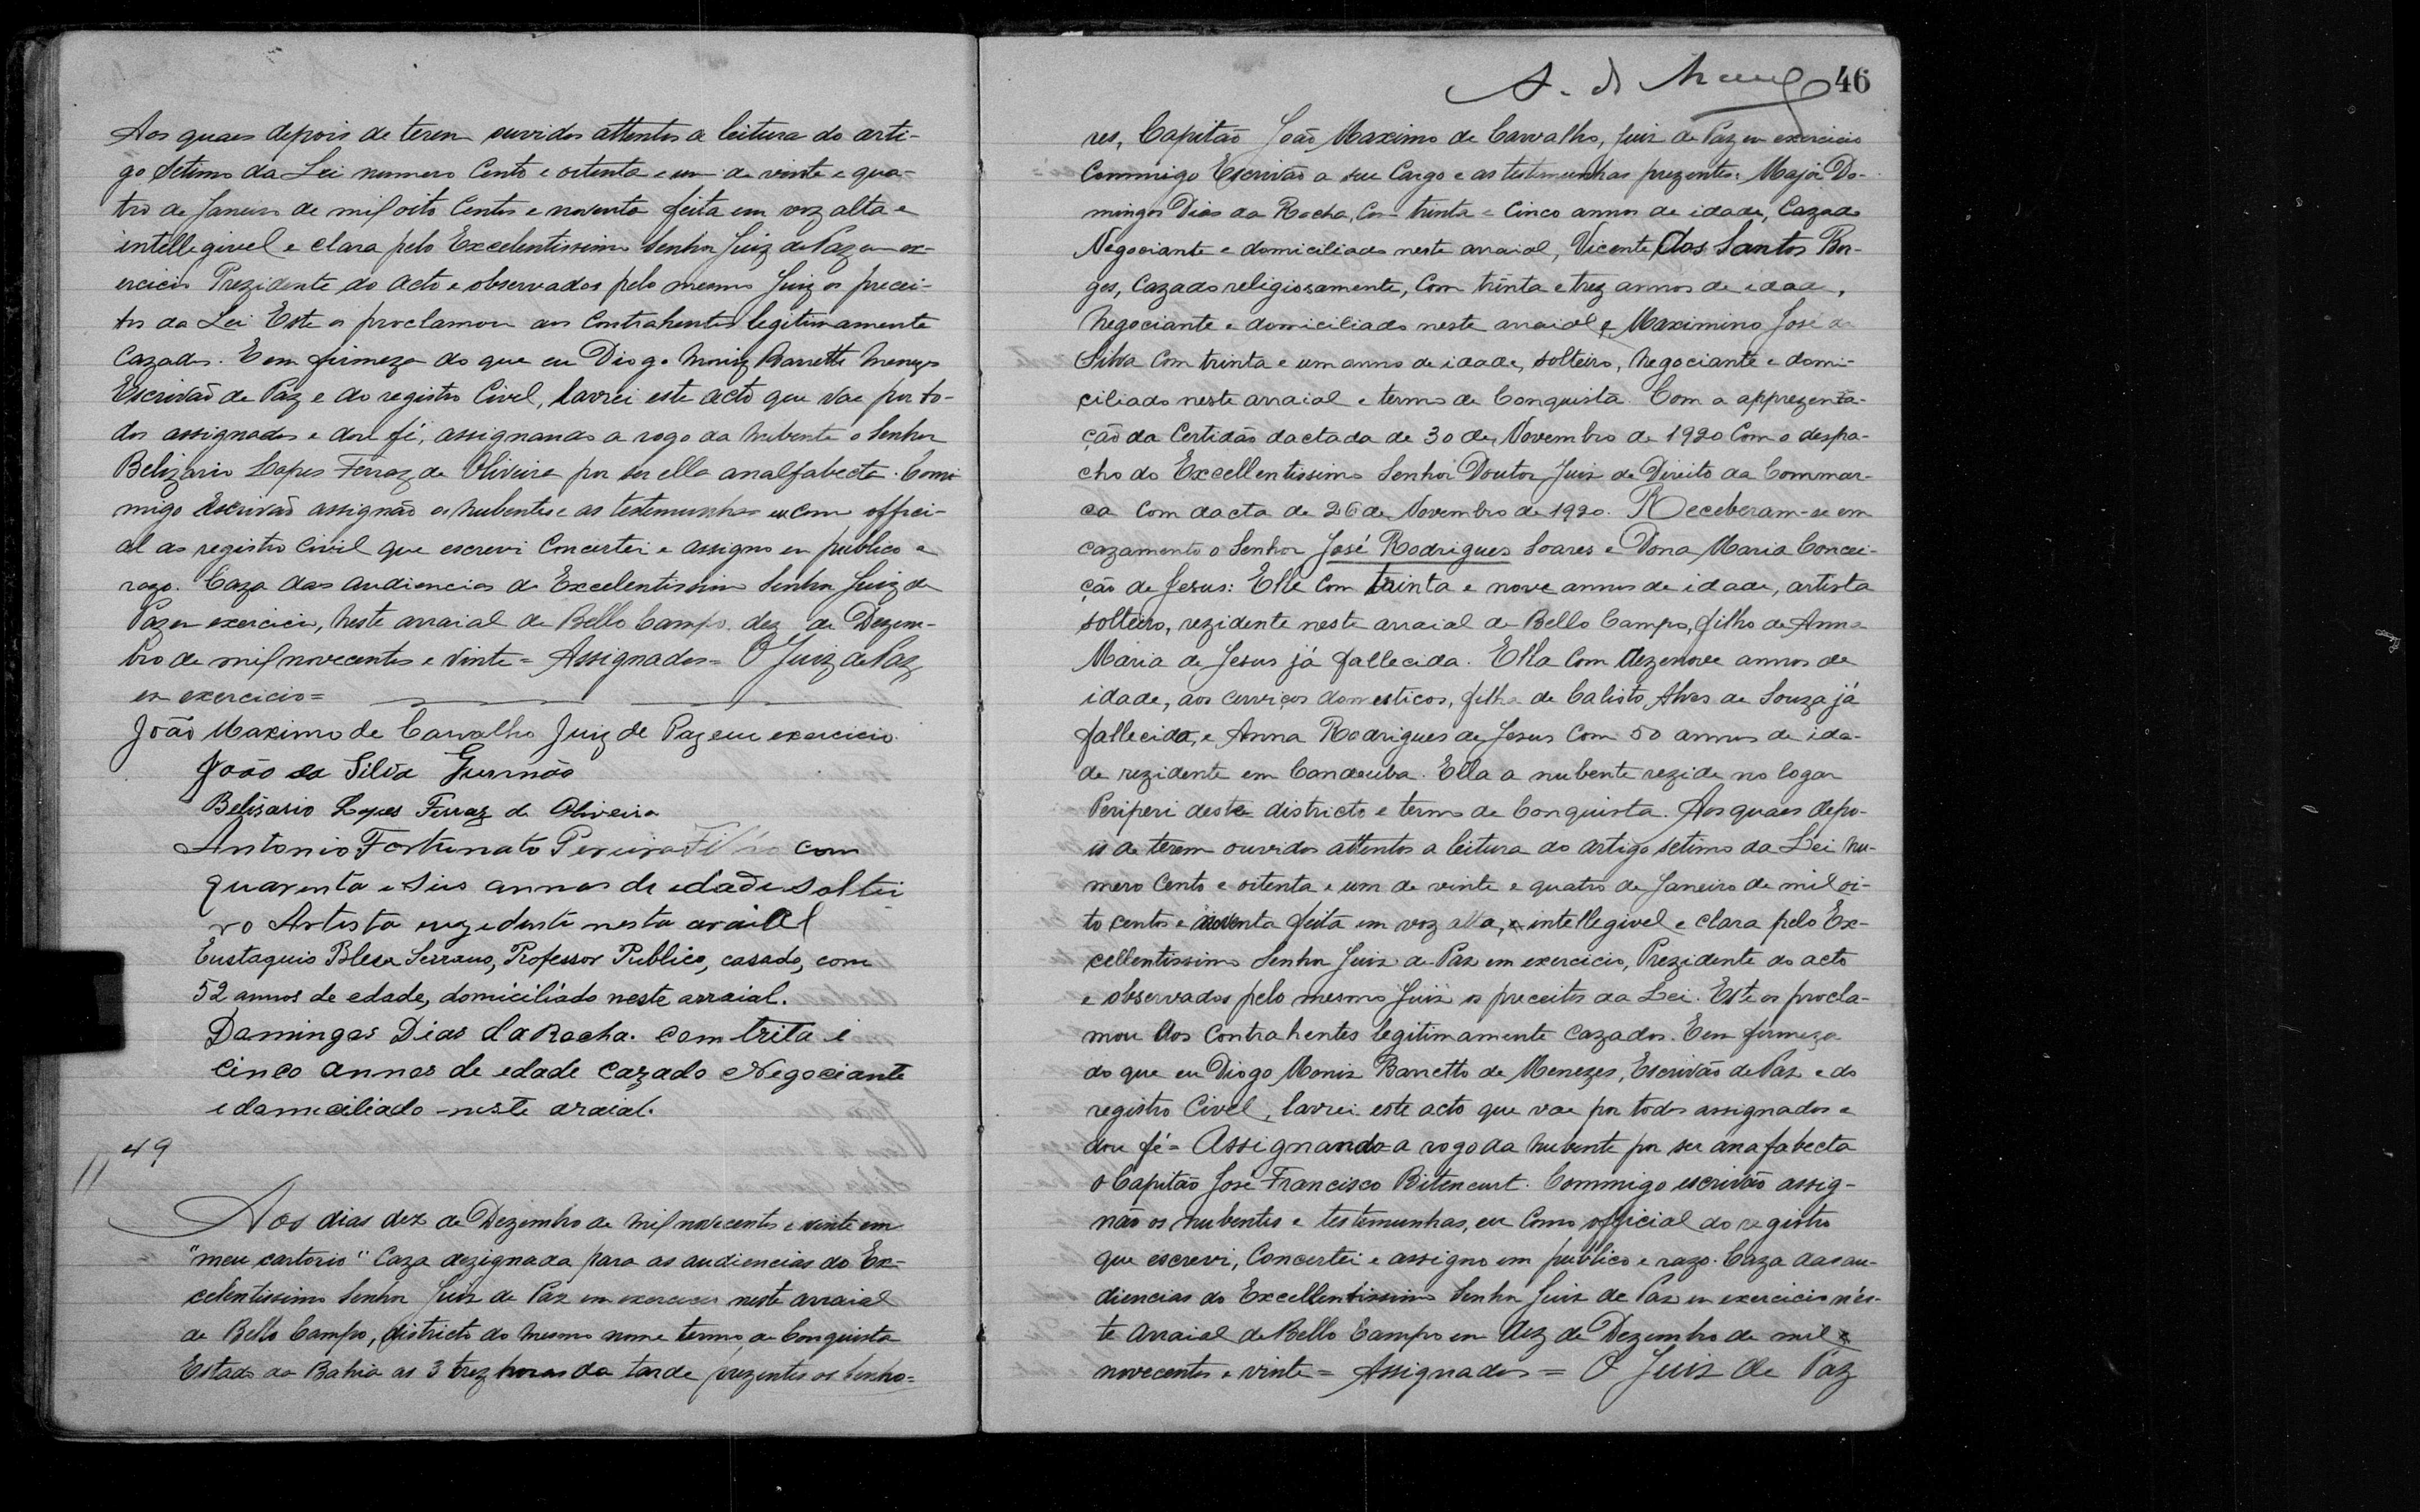 Aos quaes depois de terem ouvidos attentos a leitura do arti-
go Setimo da Lei numero Cento e oitenta e um de vinte e qua-
tro de Janeiro de mil oito Centos e noventa feita em voz alta e
intellegivel e clara pelo Excelentissimo Senhor Juiz de Paz em ex-
ercicio Prezidente do acto e observados pelo mesmo Juiz os precei-
tos da Lei Este os proclamou aos Contrahentes legitimamente
Cazados. E em firmeza do que eu Diogo Moniz Barretto Menezes
Escrivão de Paz e do registro Civel, lavrei este acto que vae por to-
dos assignados e dou fé, assignando a rogo da nubente o Senhor
Belizario Lopes Ferraz de Oliveira por ser ella analfabecta. Com-
migo Escrivão assignão os nubentes e as testemunhas eu como offici-
al do registro Civil que escrevi Concertei e assigno em publico e
razo. Caza das audiencias do Excelentissimo Senhor Juiz de
Paz em exercicio, neste arraial de Bello Campo, dez de Dezem-
bro de mil novecentos e vinte = Assignados = O Juiz de Paz
em exercicio =
João Maximo de Carvalho Juiz de Paz em exercicio
João da Silva Gusmão
Belisario Lopes Ferraz de Oliveira
Antonio Fortunato Pereira Filho com
quarenta e seis annos de edade soltei
ro Artista rezedente nesta araial
Eustaquio Blesa Serrano, Professor Publico, casado, com
52 annos de edade, domiciliado neste arraial.
Damingos Dias da Racha. com trita i
cinco annos de edade cazado Negociante
e damiciliado neste araial.
49
Aos dias dez de Dezembro de mil novecentos e vinte em
"meu cartorio" Caza dezignada para as audiencias do Ex-
celentissimo Senhor Juiz de Paz em exercicio neste arraial
de Bello Campo, districto do mesmo nome termo de Conquista
Estado da Bahia as 3 trez horas da tarde prezentes os Senho=
46
res, Capitão João Maximo de Carvalho, Juiz de Paz em exercicio
Commigo Escrivão a seu Cargo e as testemunhas prezentes: Major Do-
mingos Dias da Rocha, Com trinta e Cinco annos de idade, Cazado
Negociante e domiciliado neste arraial, Vicente dos Santos Bor-
ges, Cazado religiosamente, Com trinta e trez annos de idade,
Negociante e domiciliado neste arraial e Maximino José da
Silva Com trinta e um anno de idade, solteiro, Negociante e domi-
ciliado neste arraial e termo de Conquista. Com a apprezenta-
ção da Certidão dactada de 30 de Novembro de 1920 Com o despa-
cho do Excellentissimo Senhor Doutor Juiz de Direito da Commar-
ca Com dacta de 26 de Novembro de 1920. Receberam-se em
cazamento o Senhor José Rodrigues Soares e Dona Maria Concei-
ção de Jesus: Elle Com trinta e nove annos de idade, artista
solteiro, rezidente neste arraial de Bello Campo, filho de Anna
Maria de Jesus já fallecida. Ella Com dezenove annos de
idade, aos cerviços domesticos, filha de Calisto Alves de Souza já
fallecido, e Anna Rodrigues de Jesus Com 50 annos de ida-
de rezidente em Condeuba. Ella a nubente rezide no logar
Periperi deste districto e termo de Conquista. Aos quaes depo-
is de terem ouvidos attentos a leitura do artigo setimo da Lei nu-
mero Cento e oitenta e um de vinte e quatro de Janeiro de mil oi-
to centos e noventa feita em voz alta, e intellegivel e clara pelo Ex-
cellentissimo Senhor Juiz de Paz em exercicio, Prezidente do acto
e observados pelo mesmo Juiz os preceitos da Lei. Este os procla-
mou Aos Contrahentes legitimamente Cazados. E em firmeza
do que eu Diogo Moniz Barretto de Menezes, Escrivão de Paz e do
registro Civel, lavrei este acto que vae por todos assignados e
dou fé = Assignando a rogo da nubente por ser anafabecta
o Capitão José Francisco Bitencurt. Commigo escrivão assig-
não os nubentes e testemunhas, eu Como official do registro
que escrevi, Concertei e assigno em publico e razo. Caza das au-
diencias do Excellentissimo Senhor Juiz de Paz em exercicio nés-
te arraial de Bello Campo em dez de Dezembro de mil e
novecentos e vinte = Assignados = O Juiz de Paz